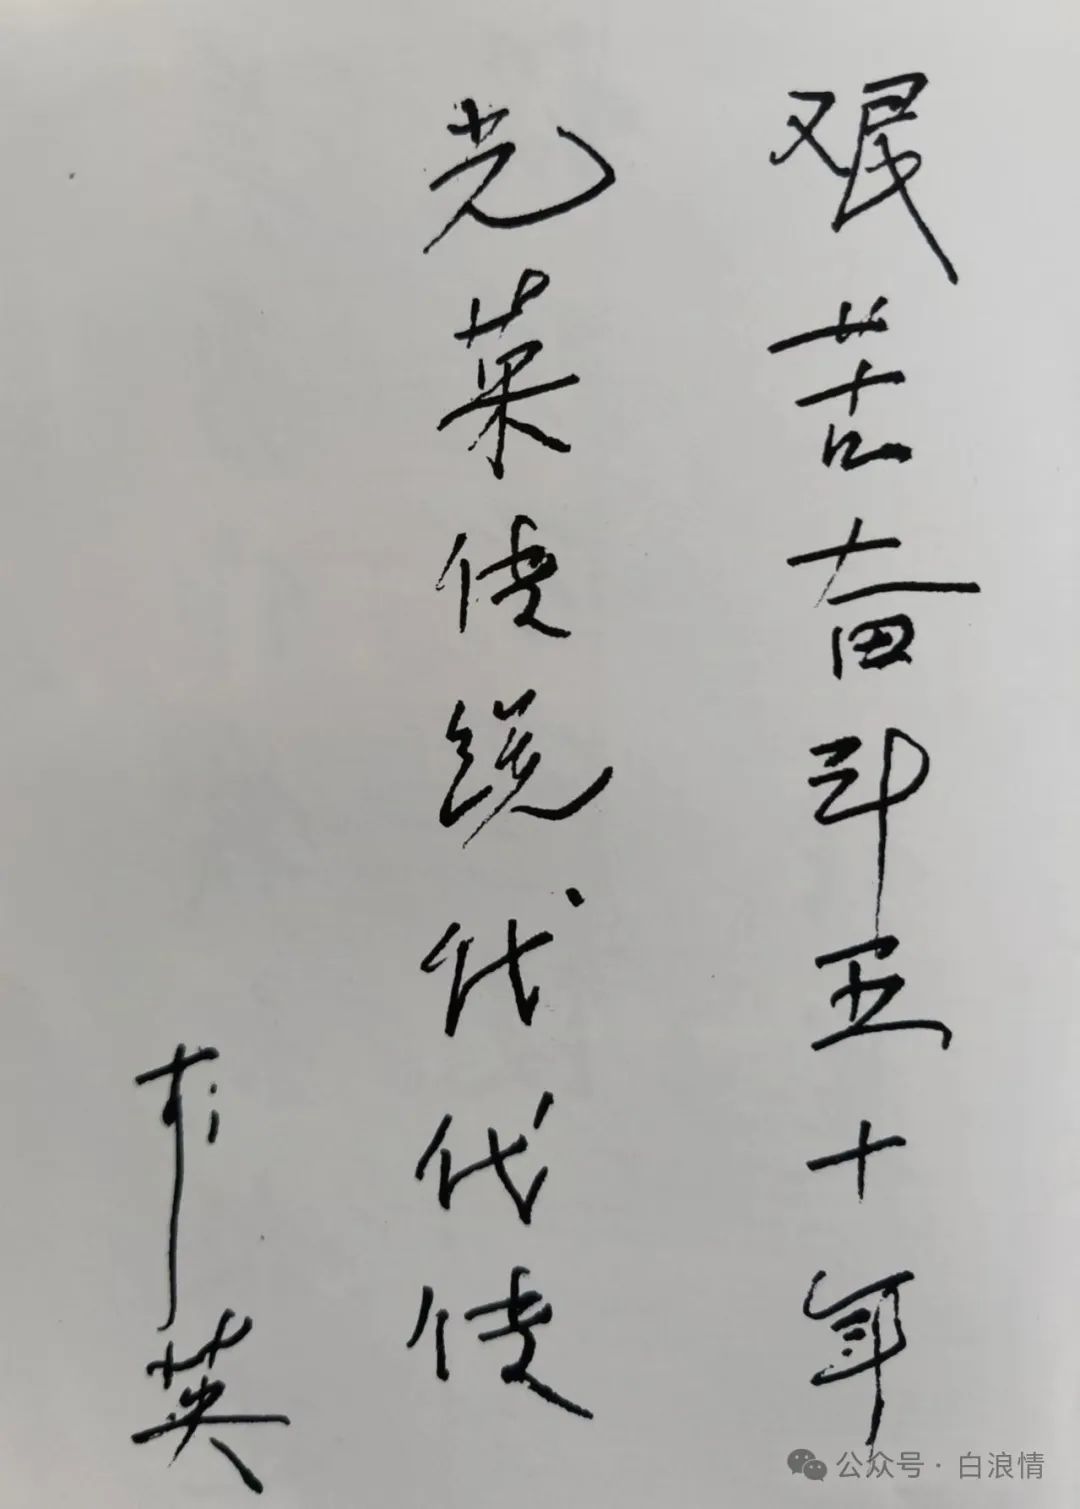 艰苦奋斗五十年
光荣传统代代传
英
公众号·白浪情